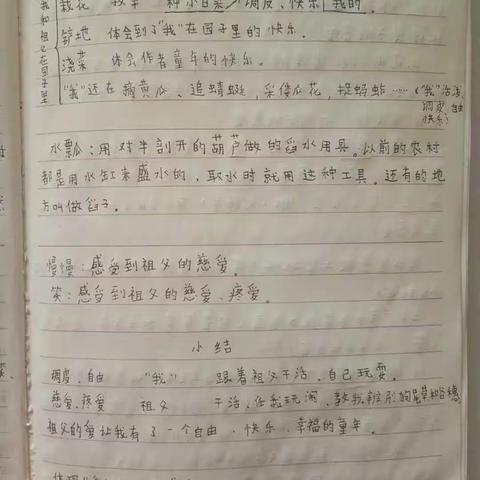 我和祖父在园子里
栽花 拔草 种小白菜 调皮、快乐 我的
铲地 体会到了"我"在园子里的快乐。
浇菜 体会作者童年的快乐。
"我"还在摘黄瓜、追蜻蜓,采倭瓜花,捉蚂蚱……("我"活泼、调皮、自由快乐)
水瓢:用对半剖开的葫芦做的舀水用具。以前的农村
都是用水缸来盛水的,取水时就用这种工具。还有的地
方叫做舀子。
慢慢:感受到祖父的慈爱。
笑:感受到祖父的慈爱、疼爱。
小结
调皮、自由 "我" 跟着祖父干活,自己玩耍。
慈爱、疼爱 祖父 干活、任我玩闹、教我辨别狗尾草和谷穗
祖父的爱让我有了一个自由、快乐、幸福的童年。